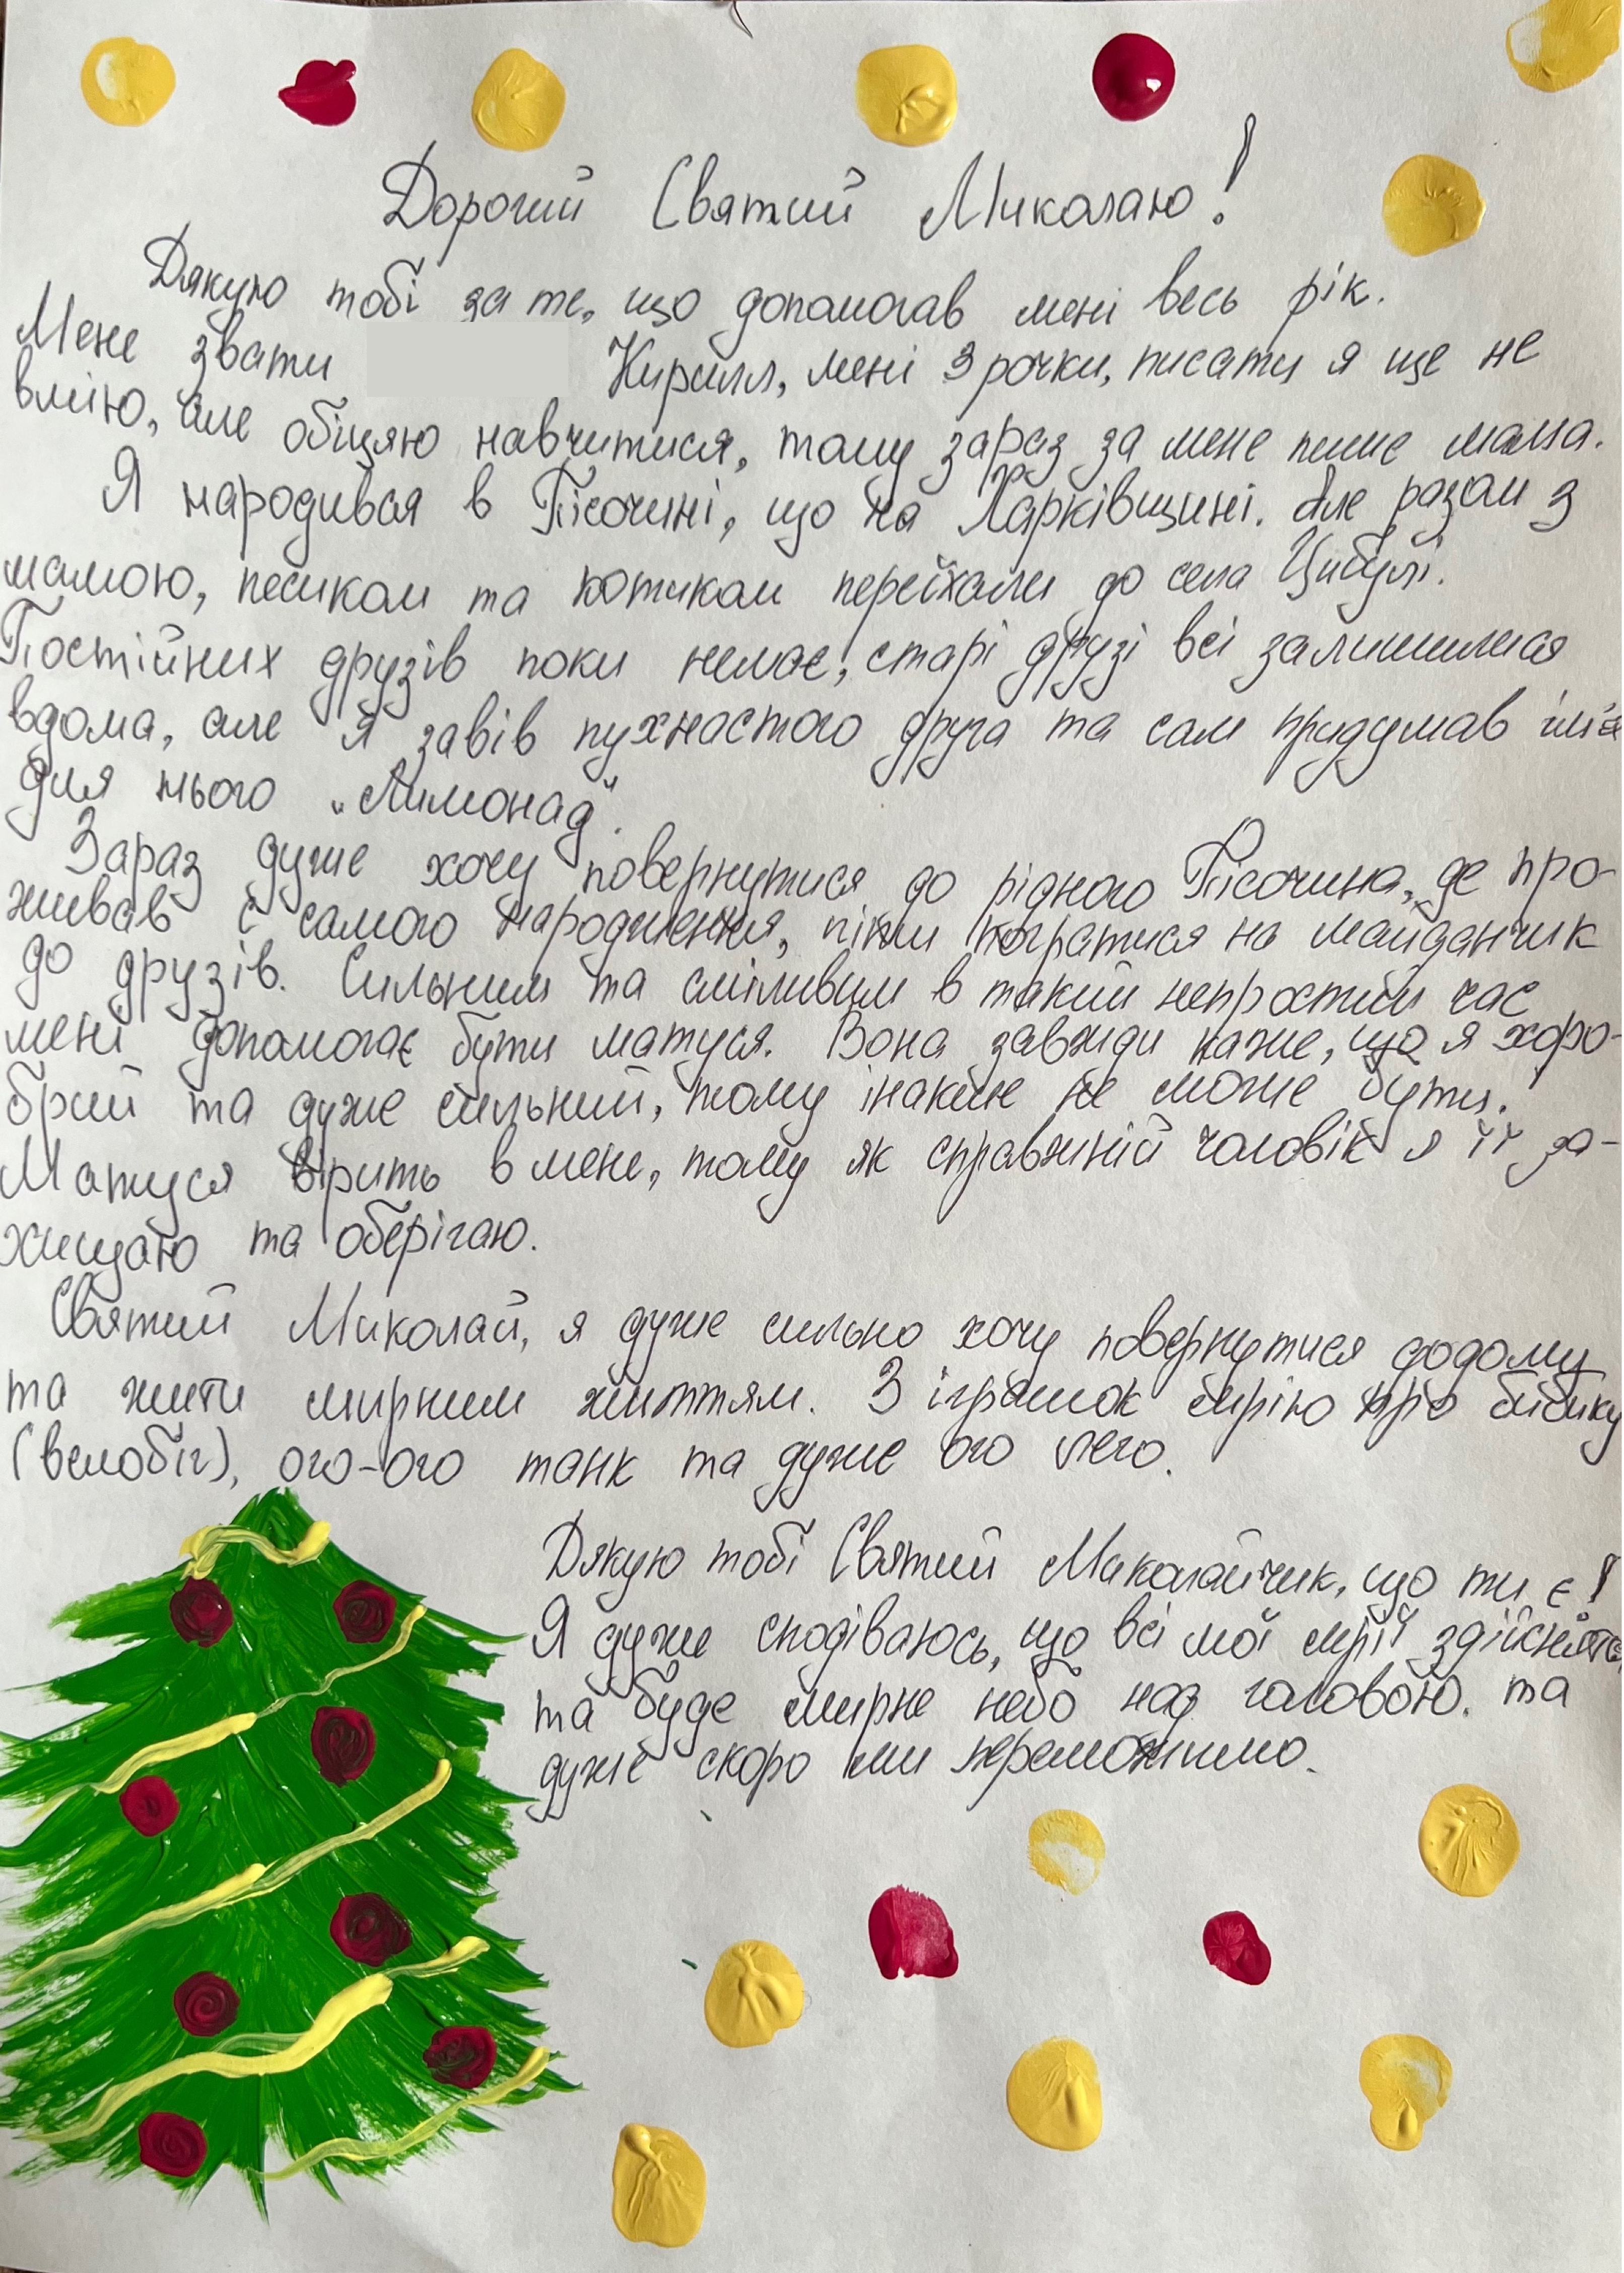 Дорогий Святий Миколаю!
Дякую тобі за те, що допомогав мені весь рік.
Мене звати Кирилл, мені 3 рочки, писати я ще не
вмію, але обіцяю навчитися, тому зараз за мене пише мама.
Я народився в Пісочині, що на Харківщині. Але разом з
мамою, песиком та котиком переїхали до села Цибулі.
Постійних друзів поки немає, старі друзі всі залишилися
вдома, але я завів пухнастого друга та сам придумав ім'я
для нього „Лимонад".
Зараз дуже хочу повернутися до рідного Пісочина, де про-
живав с самого народження, піти погратися на майданчик
до друзів. Сильним та сміливим в такий непростий час
мені допомогає бути матуся. Вона завжди каже, що я хоро-
брий та дуже сильний, тому інакше не може бути.
Матуся вірить в мене, тому як справжній чоловік я її за-
хищаю та оберігаю.
Святий Миколай, я дуже сильно хочу повернутися додому
та жити мирним життям. З іграшок мрію про бібику
(велобіг), ого-ого танк та дуже ого лего.
Дякую тобі Святий Миколайчик, що ти є!
Я дуже сподіваюсь, що всі мої мрії
та буде мирне небо над головою. та
дуже скоро ми переможимо.